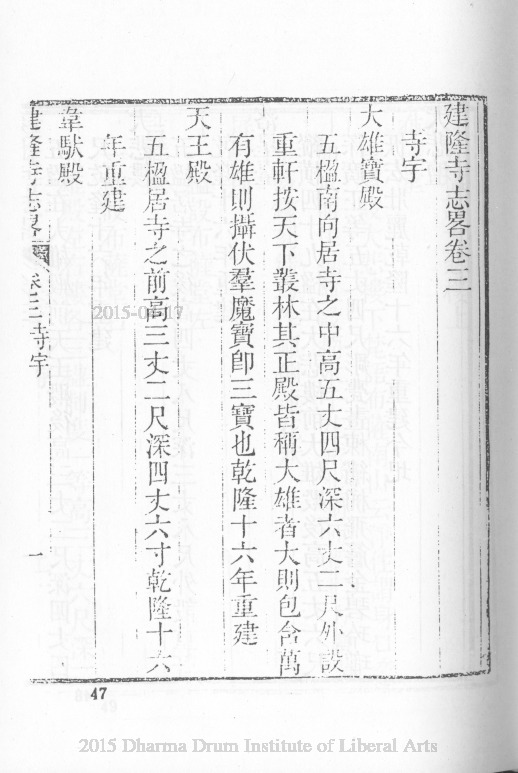 建隆寺志畧卷三
寺宇
大雄寶殿
五楹南向居寺之中高五丈四尺深六丈二尺外設
重軒按天下叢林其正殿皆稱大雄者大則包含萬
有雄則攝伏羣魔寶卽三寶也乾隆十六年重建
天王殿
五楹居寺之前高三丈二尺深四丈六寸乾隆十六
年重建
韋馱殿
建隆寺志畧 卷三 寺宇 一
47
2015 Dharma Drum Institute of Liberal Arts